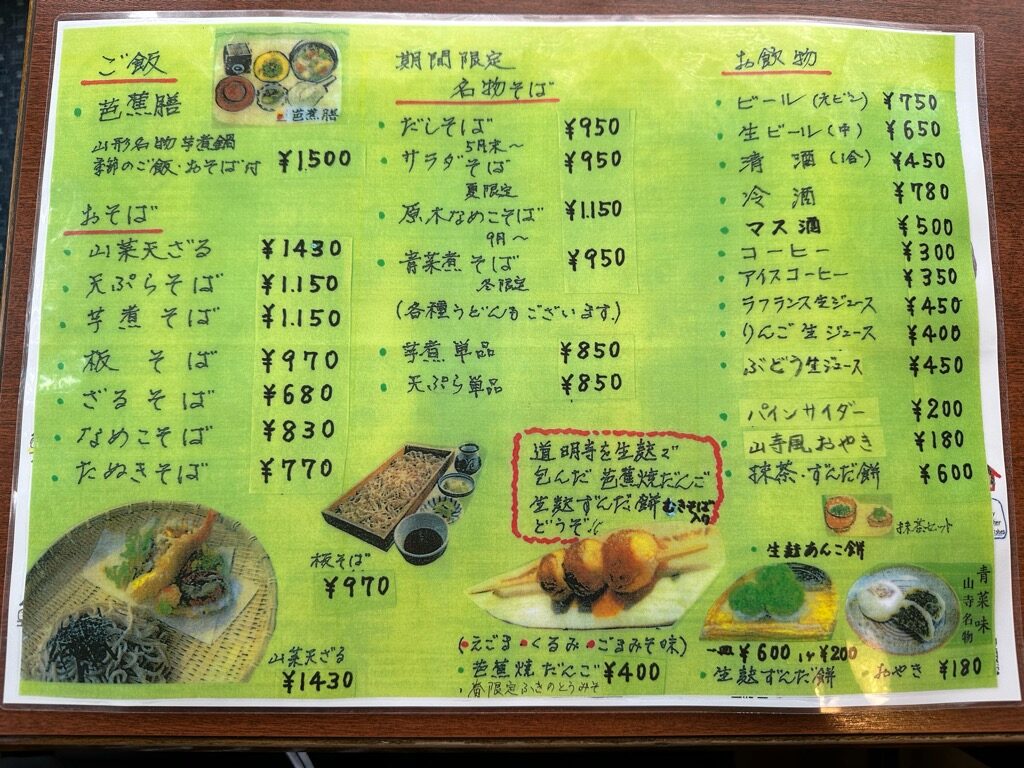 ご飯
・芭蕉膳
山形名物芋煮鍋
季節のご飯・おそば付 ¥1500
芭蕉膳
おそば
・山菜天ざる ¥1430
・天ぷらそば ¥1.150
・芋煮そば ¥1.150
・板そば ¥970
・ざるそば ¥680
・なめこそば ¥830
・たぬきそば ¥770
期間限定
名物そば
・だしそば ¥950
5月末〜
・サラダそば ¥950
夏限定
・原木なめこそば ¥1.150
9月〜
・青菜煮そば ¥950
冬限定
(各種うどんもございます.)
・芋煮単品 ¥850
・天ぷら単品 ¥850
お飲物
・ビール(大ビン) ¥750
・生ビール(中) ¥650
・清酒(1合) ¥450
・冷酒 ¥780
・マス酒 ¥500
・コーヒー ¥300
・アイスコーヒー ¥350
・ラフランス生ジュース ¥450
・りんご生ジュース ¥400
・ぶどう生ジュース ¥450
・パインサイダー ¥200
・山寺風おやき ¥180
・抹茶・ずんだ餅 ¥600
抹茶セット
道明寺を生麩で
包んだ 芭蕉焼だんご
生麩ずんだ餅 むきそば入り
どうぞ!!
板そば
¥970
山菜天ざる
¥1430
(・えごま・くるみ・ごまみそ味)
・芭蕉焼だんご ¥400
・春限定ふきのとうみそ
・生麩あんこ餅
一皿 ¥600 1ヶ ¥200
・生麩ずんだ餅
青菜味
山寺名物
・おやき ¥180